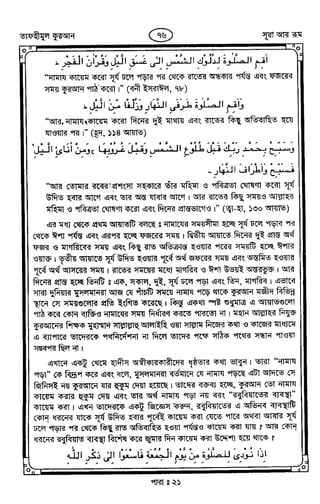 তাফহীমুল কুরআন
৭৬
সূরা আর রূম
أَقِمِ الصَّلٰوةَ لِدُلُوكِ الشَّمْسِ إِلٰى غَسَقِ الَّيْلِ وَقُرْاٰنَ الْفَجْرِ
"নামায কায়েম করো সূর্য ঢলে পড়ার পর থেকে রাতের অন্ধকার পর্যন্ত এবং ফজরের
সময় কুরআন পাঠ করো।" (বনী ইসরাঈল, ৭৮)
وَأَقِمِ الصَّلٰوةَ طَرَفَيِ النَّهَارِ وَزُلَفًا مِّنَ الَّيْلِ
"আর, নামায কায়েম করো দিনের দুই মাথায় এবং রাতের কিছু অতিবাহিত হয়ে
যাওয়ার পর।" (হূদ, ১১৪ আয়াত)
وَسَبِّحْ بِحَمْدِ رَبِّكَ قَبْلَ طُلُوعِ الشَّمْسِ وَقَبْلَ غُرُوبِهَا ۚ وَمِنْ اٰنَآئِ الَّيْلِ
فَسَبِّحْ وَأَطْرَافَ النَّهَارِ
"আর তোমার রবের প্রশংসা সহকারে তাঁর মহিমা ও পবিত্রতা ঘোষণা করো সূর্য
উদিত হবার আগে এবং তার অস্ত যাবার আগে। আর রাতের কিছু সময়ও আল্লাহর
মহিমা ও পবিত্রতা ঘোষণা করো এবং দিনের প্রান্তভাগেও।" (ত্বা-হা, ১৩০ আয়াত)
এর মধ্যে থেকে প্রথম আয়াতটি বলছে : নামাযের সময়সীমা হচ্ছে সূর্য ঢলে পড়ার পর
থেকে ঈশা পর্যন্ত এবং এরপর হচ্ছে ফজরের সময়। দ্বিতীয় আয়াতে দিনের দুই প্রান্ত অর্থ
ফজর ও মাগরিবের সময় এবং কিছু রাত অতিক্রান্ত হওয়ার পরের সময়টি হচ্ছে ঈশার
ওয়াক্ত। তৃতীয় আয়াতে সূর্য উদিত হওয়ার পূর্বে অর্থ ফজরের সময় এবং অস্তমিত হওয়ার
পূর্বে অর্থ আসরের সময়। রাতের সময়ের মধ্যে মাগরিব ও ঈশা উভয়ই অন্তরভুক্ত। আর
দিনের প্রান্ত হচ্ছে তিনটি : এক, সকাল, দুই, সূর্য ঢলে পড়া এবং তিন, মাগরিব। এভাবে
সারা দুনিয়ার মুসলমানরা আজ যে পাঁচটি সময়ে নামায পড়ে থাকে কুরআন মজীদ বিভিন্ন
স্থানে সে সময়গুলোর প্রতি ইংগিত করেছে। কিন্তু একথা স্পষ্ট শুধুমাত্র এ আয়াতগুলো
পাঠ করে কোন ব্যক্তিও নামাযের সময় নির্ধারণ করতে পারতো না। মহান আল্লাহর নিযুক্ত
কুরআনের শিক্ষক মুহাম্মাদ সাল্লাল্লাহু আলাইহি ওয়া সাল্লাম নিজের কথা ও কাজের মাধ্যমে
এ ব্যাপারে তাদেরকে পথনির্দেশনা না দিলে তাদের পক্ষে সঠিক পথের সন্ধান পাওয়া
সম্ভবপর ছিল না।
এখানে একটু থেমে হাদীস অস্বীকারকারীদের ধৃষ্টতার কথা ভাবুন। তারা "নামায
পড়া" কে বিদ্রূপ করে এবং বলে, মুসলমানরা বর্তমানে যে নামায পড়ছে এটা আদতে সে
জিনিসই নয় কুরআনে যার হুকুম দেয়া হয়েছে। তাদের বক্তব্য হচ্ছে, কুরআন তো নামায
কায়েম করার হুকুম দেয় এবং তার অর্থ নামায পড়া নয় বরং "রবুবিয়াতের ব্যবস্থা"
কায়েম করা। এখন তাদেরকে একটু জিজ্ঞেস করুন, রবুবিয়াতের এ অভিনব ব্যবস্থাটি
কোন্ ধরনের যাকে সূর্য উদিত হবার পূর্বেই কায়েম করা যেতে পারে অথবা আবার সূর্য
ঢলে পড়ার পর থেকে কিছু রাত অতিবাহিত হওয়া পর্যন্তও কায়েম করা যায়? আর কোন্
ধরনের রবুবিয়াত ব্যবস্থা বিশেষ করে জুমার দিন কায়েম করা উদ্দেশ্য হয়ে থাকে?
إِذَا نُودِيَ لِلصَّلٰوةِ مِن يَّوْمِ الْجُمُعَةِ فَاسْعَوْا إِلٰى ذِكْرِ اللّٰهِ
পারা : ২১